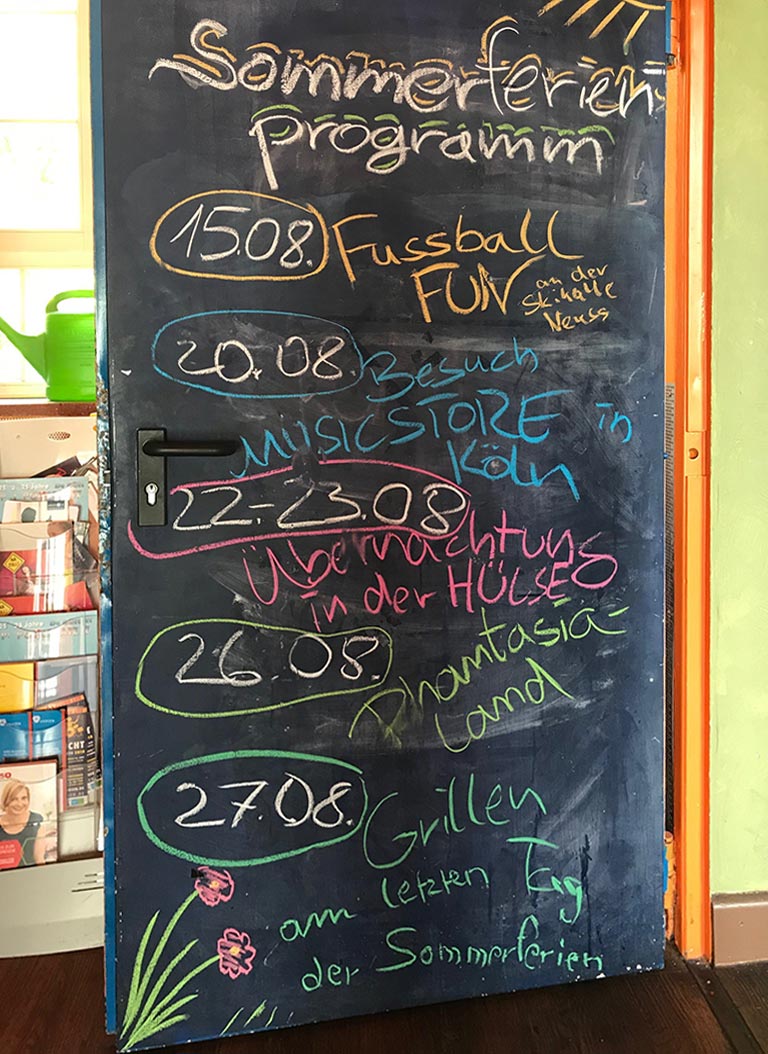 Sommerferien
programm
15.08. Fussball
FUN an der
Skihalle
Neuss
20.08. Besuch
MUSICSTORE in
Köln
22.-23.08
Übernachtung
in der HÜLSE
26.08. Phantasia-
Land
27.08. Grillen
am letzten Tag
der Sommerferien